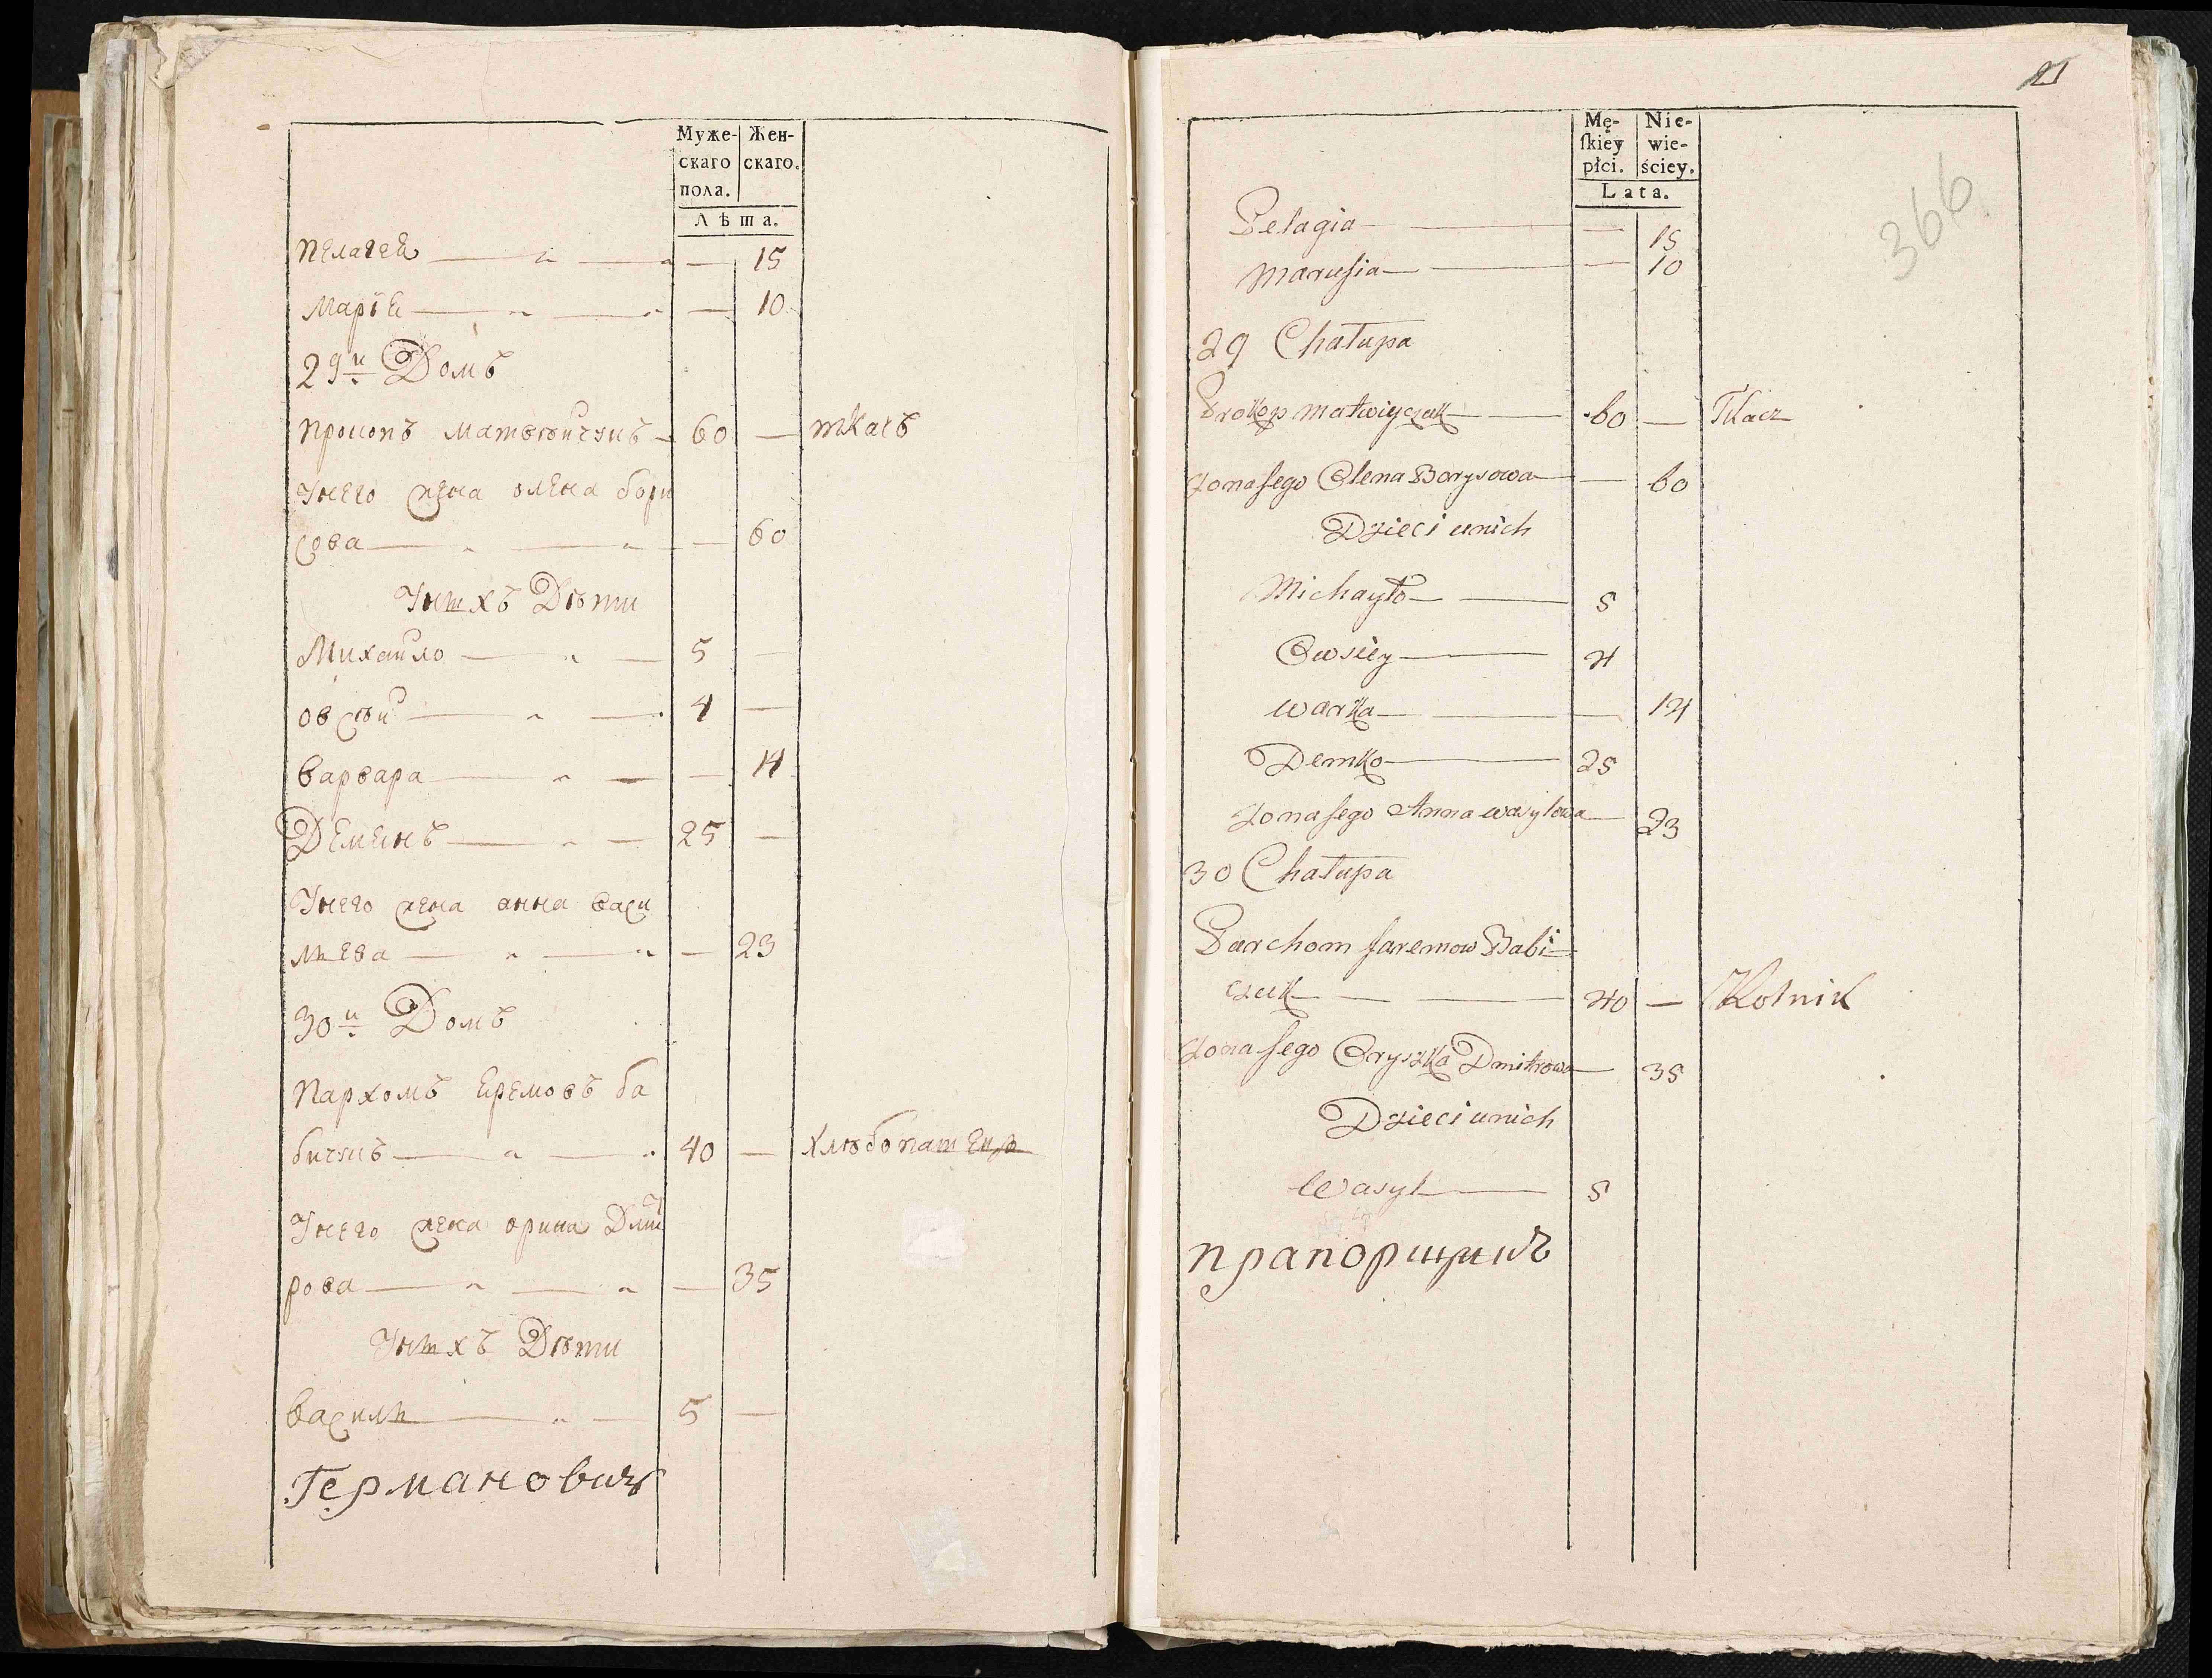 Муже- Жен-
скаго скаго.
пола.
Лѣта.
Пелагея — 15
Марія — 10
29й Домъ
Прокопъ Матвѣйчукъ — 60 — ткачъ
Унего жена олена бори
сова — 60
Унихъ Дѣти
Михайло — 5 —
овсѣй — 4 —
варвара — 14
Деменъ — 25 —
Унего жена анна васи
лева — 23
30й Домъ
Пархомъ Еремовъ ба
бичукъ — 40 — хлѣбопашецъ
Унего жена орина Дмит
рова — 35
Унихъ Дѣти
василь — 5 —
Германовичъ
21
366
Mę- Nie-
ſkiey wie-
płci. ściey.
Lata.
Pelagia — 15
Marusia — 10
29 Chałupa
Prokop Matwiyczuk — 60 — Tkacz
Zona jego Olena Borysowa — 60
Dzieci unich
Michayło — 5
Owsiey — 4
Warka — 14
Demko — 25
Zona jego Anna Wasylowa — 23
30 Chałupa
Parchom Jaremow Babi=
czuk — 40 — Rolnik
Zona jego Oryszka Dmitrowa — 35
Dzieci unich
Wasyl — 5
прапорщикъ